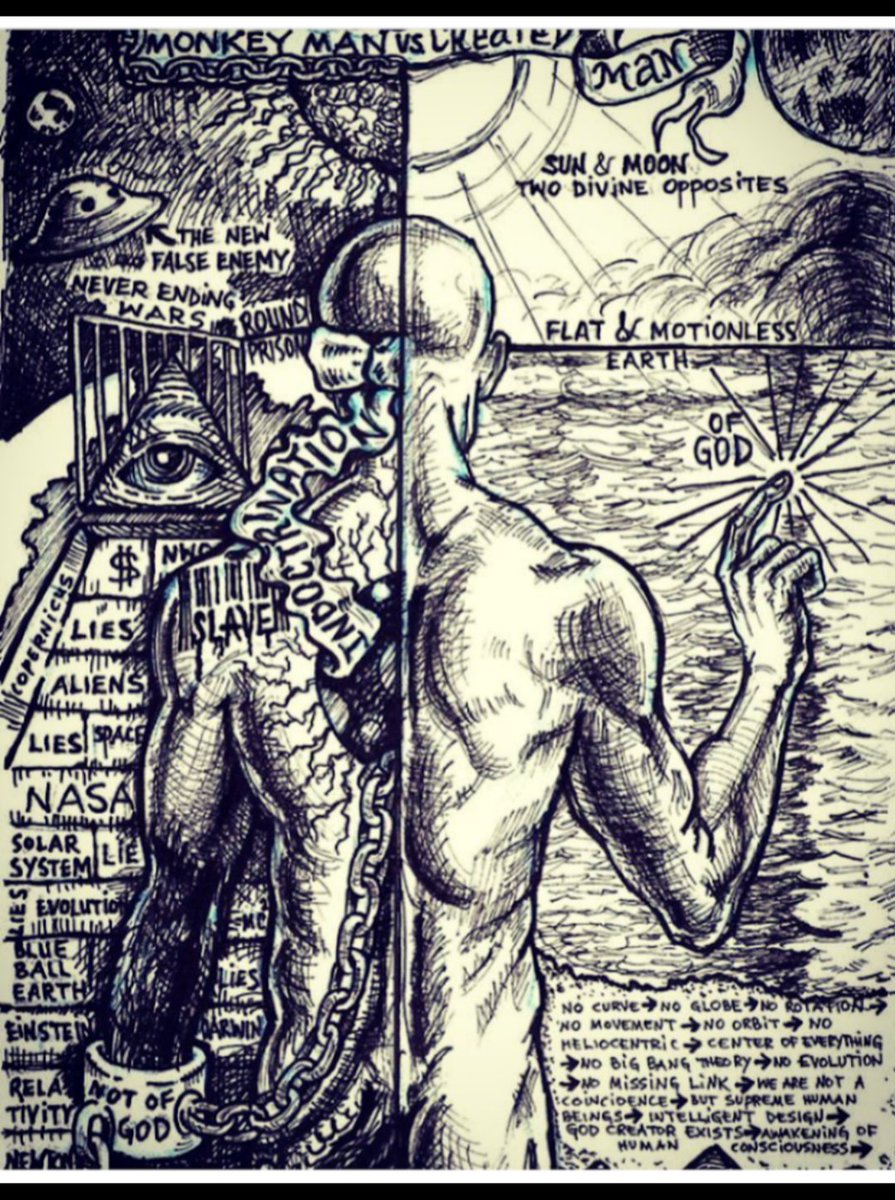 MONKEY MAN VS. CREATED
MAN
SUN & MOON
TWO DIVINE OPPOSITES
THE NEW
FALSE ENEMY
NEVER ENDING
WARS
ROUND
PRISON
FLAT & MOTIONLESS
EARTH
OF
GOD
INDOCTRINATION
COPERNICUS
$
NWO
SLAVE
LIES
ALIENS
LIES
SPACE
NASA
SOLAR
SYSTEM
LIE
LIES
EVOLUTIO
BLUE
BALL
EARTH
LIES
EINSTEIN
DARWIN
RELA
TIVITY
NOT OF
GOD
NEWTON
NO CURVE→NO GLOBE→NO ROTATION→
NO MOVEMENT→NO ORBIT→NO
HELIOCENTRIC→CENTER OF EVERYTHING
→NO BIG BANG THEORY→NO EVOLUTION
→NO MISSING LINK→WE ARE NOT A
COINCIDENCE→BUT SUPREME HUMAN
BEINGS→INTELLIGENT DESIGN→
GOD CREATOR EXISTS→AWAKENING OF
HUMAN CONSCIOUSNESS→